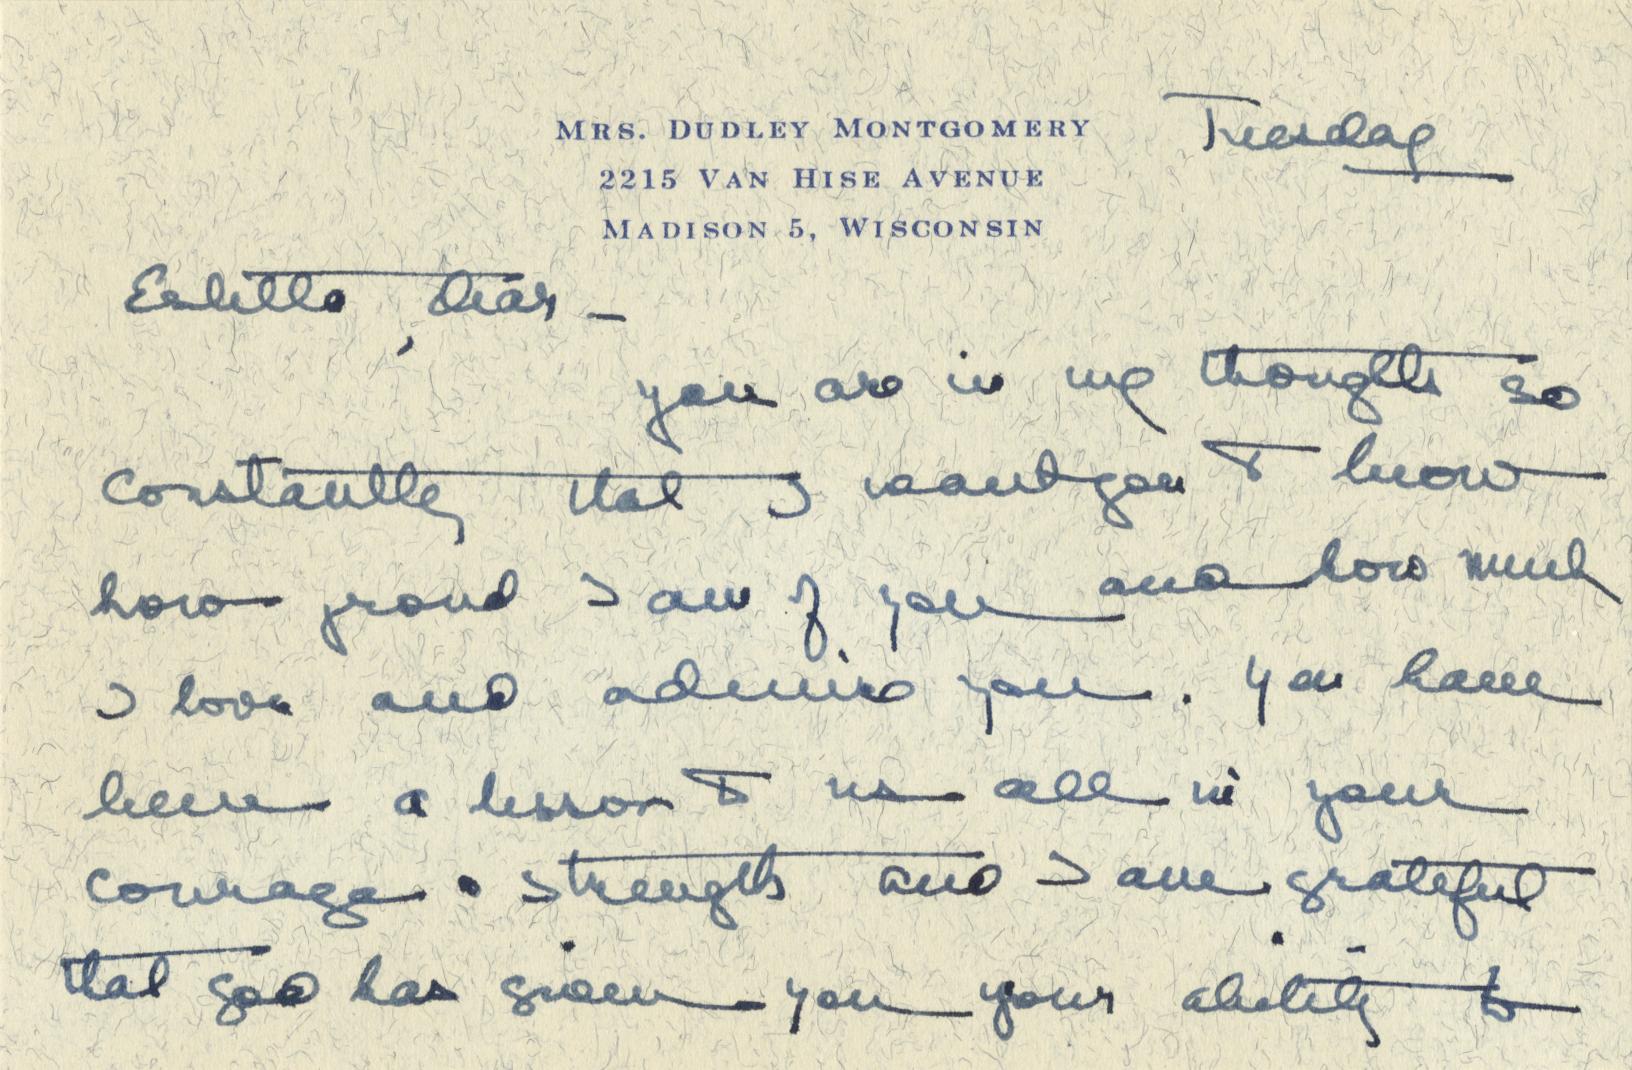 MRS. DUDLEY MONTGOMERY
2215 VAN HISE AVENUE
MADISON 5, WISCONSIN
Tuesday
Dear –
you are in my thoughts so
constantly that I want you to know
how proud I am of you and how much
I love and admire you. You have
been a lesson to us all in your
courage & strength and I am grateful
that God has given you your ability to